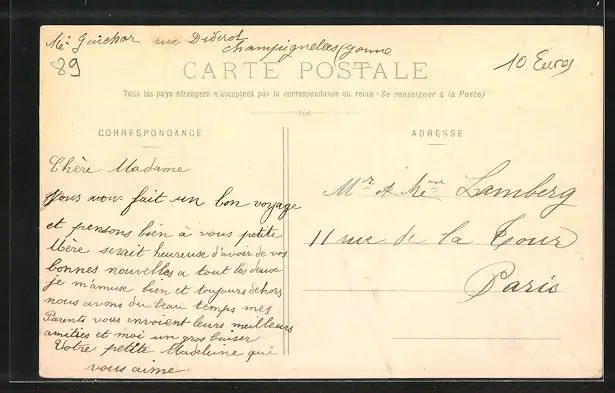 Mr Guichar rue Diderot
Champignelles Yonne
89
10 Euros
CARTE POSTALE
Tous les pays étrangers n'acceptent pas la correspondance au recto (Se renseigner à la Poste)
CORRESPONDANCE
ADRESSE
Chère Madame
Nous avons fait un bon voyage
et pensons bien à vous petite
Mère serait heureuse d'avoir de vos
bonnes nouvelles a tout les deux
je m'amuse bien et toujours dehors
nous avons du beau temps mes
Parents vous envoient leurs meilleurs
amitiés et moi un gros baiser
Votre petite Madeleine qui
vous aime
Mr et Mme Lamberg
11 rue de la Tour
Paris